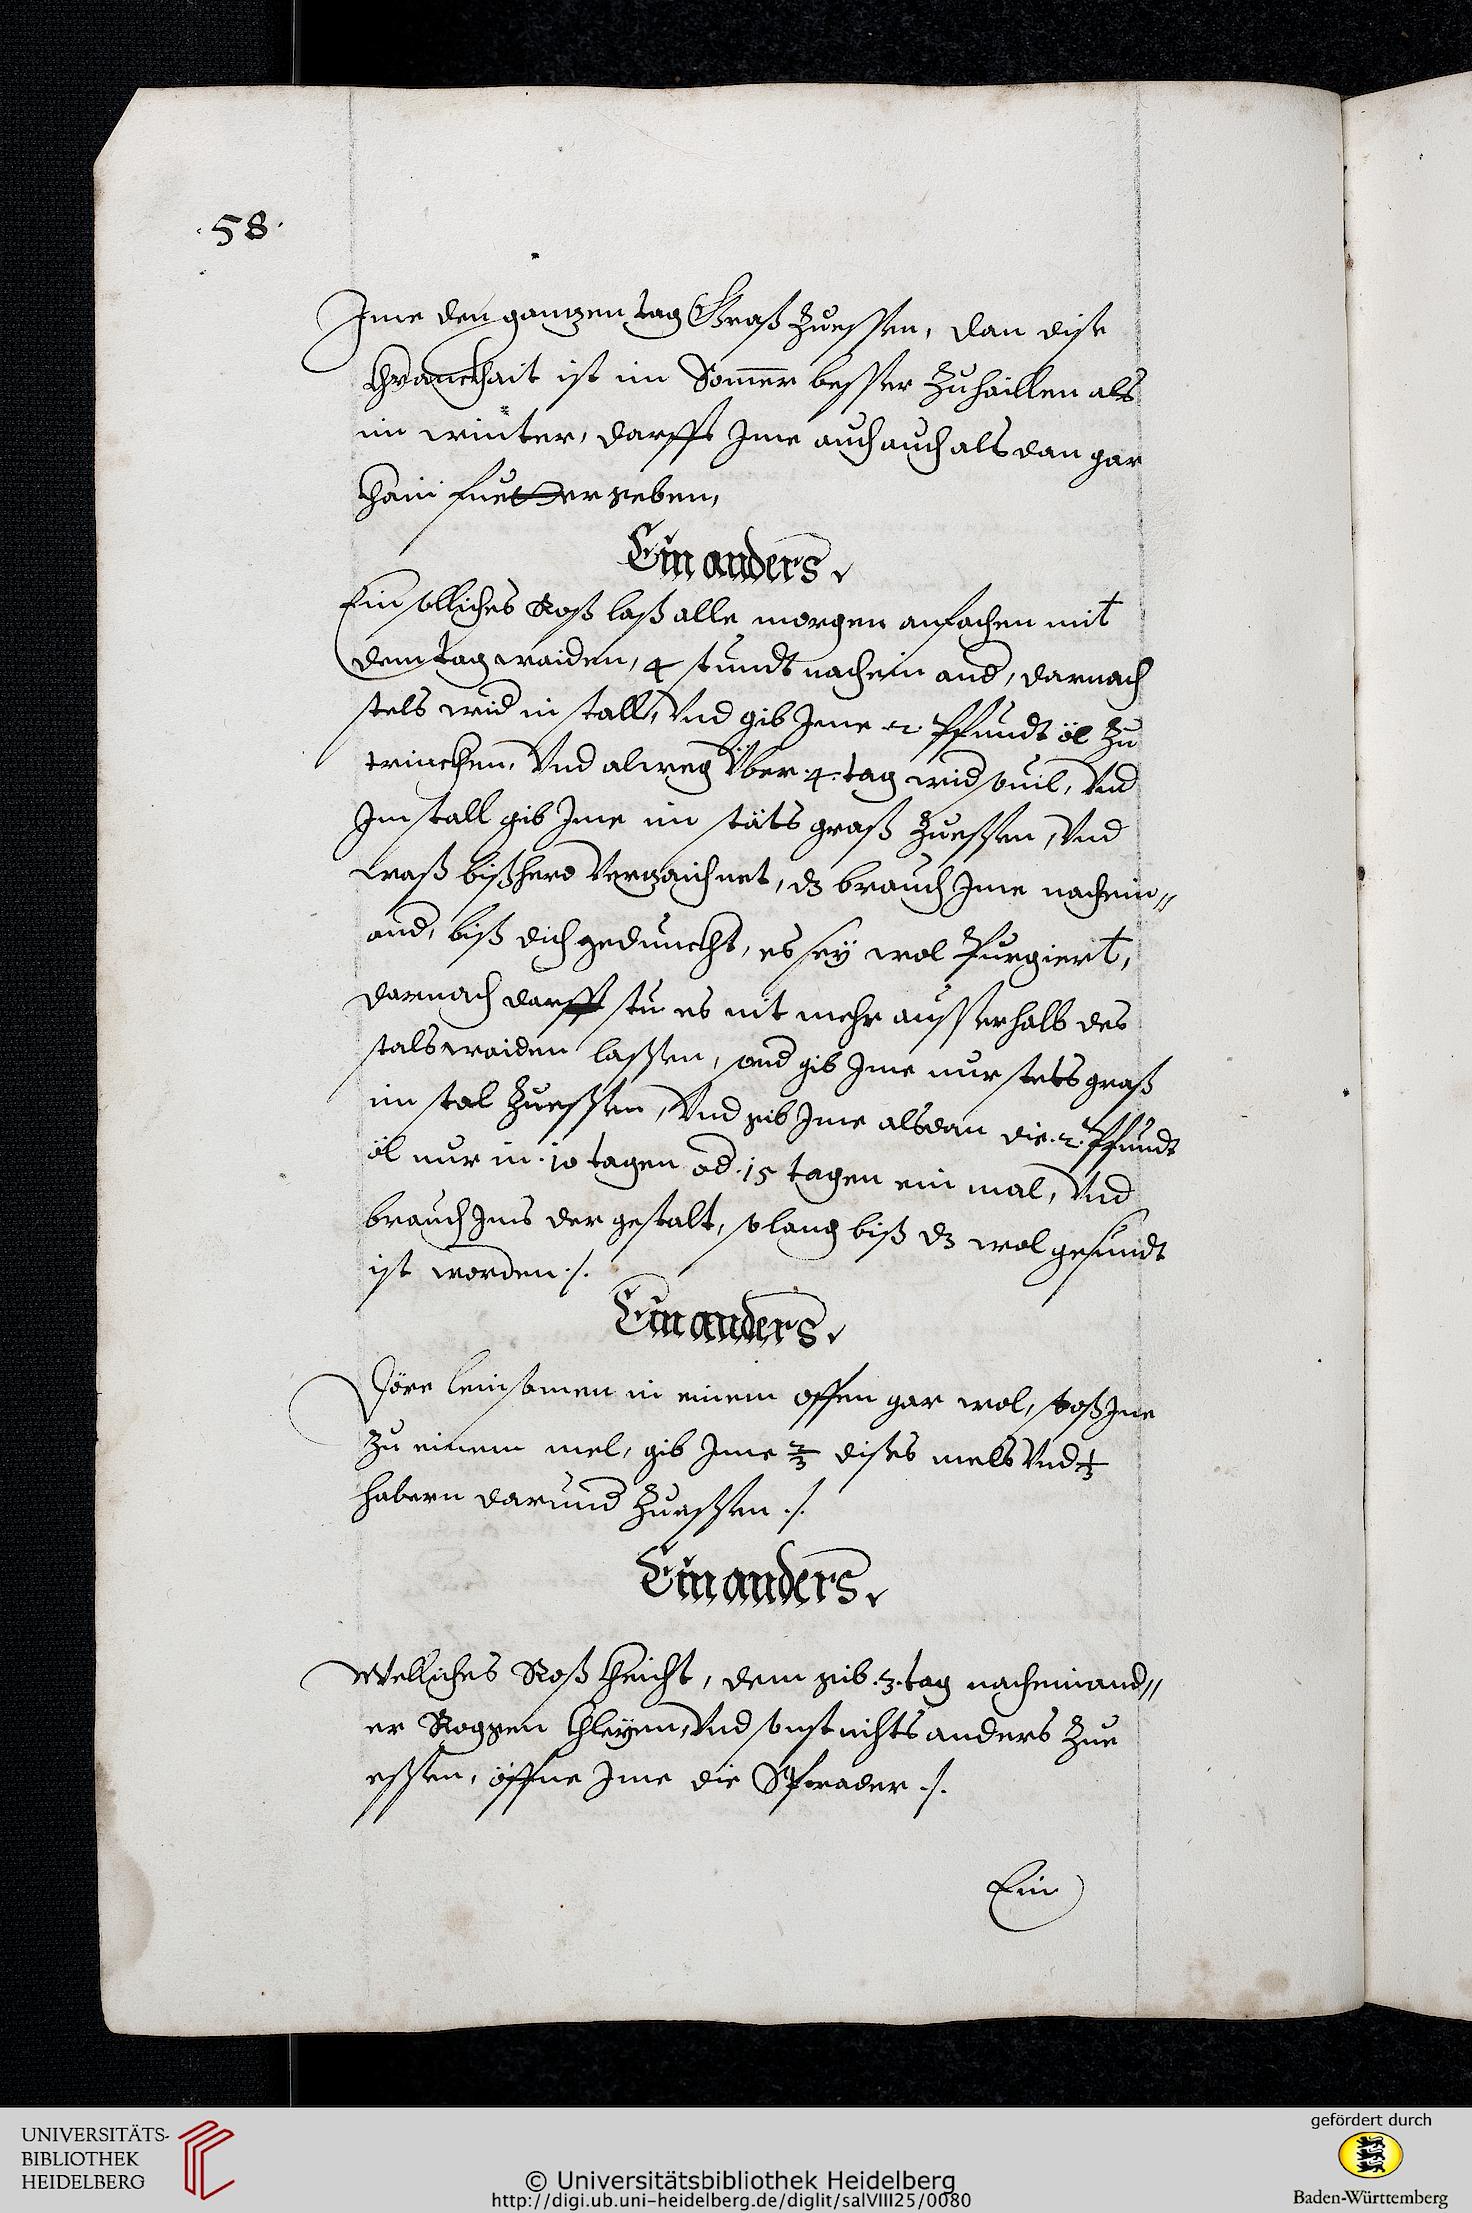 .58.
Jme den ganzen tag Graß Zuessen, dan dise
Khranckhait ist im Sommer besser Zuhaillen als
im winter, darffst Jme auch auch alsdan gar
khain fuetter geben,
Ein anders.
Ein solliches Roß laß alle morgen anfachen mit
dem tag waiden, 4 stundt nachein and, darnach
stels wid in stall, Vnd gib Jme .2. Pfundt öl Zu
trinckhen, Vnd alweg Über .4. tag wid souil, Vnd
Jm stall gib Jme im stäts graß Zuessen, Vnd
waß bißhero Verzaichnet, dz brauch Jme nachein„
and, biß dich gedunckht, es seÿ wol Purgiert,
darnach darffstu es nit mehr ausserhalb des
stals waiden lassen, sond gib Jme nur stets graß
im stal Zuessen, Vnd gib Jme alsdan die .2. Pfundt
öl nur in .10 tagen od .15 tagen ein mal, Vnd
brauch Jms der gestalt, so lang biß dz wol gesundt
ist worden ./.
Ein anders.
Döre leinsamen in einem offen gar wol, stoß Jne
Zu einem mel, gib Jme 2/3 dises mels Vnd 1/3
habern darund Zuessen ./.
Ein anders.
Welliches Roß kheicht, dem gib .3. tag nacheinand„
er Roggen khleÿen, Vnd sonst nichts anders Zue
essen, öffne Jme die Sporader ./.
Ein
UNIVERSITÄTS-
BIBLIOTHEK
HEIDELBERG
© Universitätsbibliothek Heidelberg
http://digi.ub.uni-heidelberg.de/diglit/salVIII25/0080
gefördert durch
Baden-Württemberg